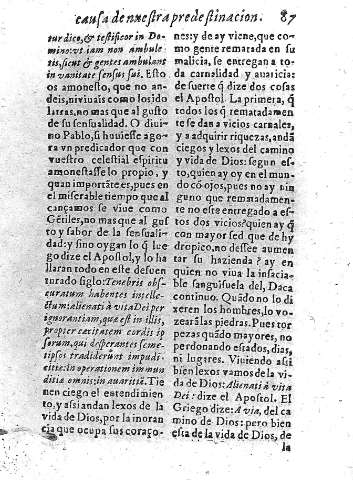 causa de nuestra predestinacion. 87
tur dico, & testificor in Do
mino: vt iam non ambule
tis, sicut & gentes ambulant
in vanitate sensus sui. Esto
os amonesto, que no an-
deis, ni viuais como los ido
latras, no mas que al gusto
de su sensualidad. O diui-
no Pablo, si huuiesse ago-
ra vn predicador que con
vuestro celestial espiritu
amonestasse lo propio, y
quan importāte es, pues en
el miserable tiempo que al
cançamos se viue como
Gētiles, no mas que al gus
to y sabor de la sensuali-
dad: y sino oygan lo q̃ lue
go dize el Apostol, y lo ha
llaran todo en este desuen
turado siglo: Tenebris obs-
curatum habentes intelle-
ctū: alienati à vita Dei per
ignorantiam, quæ est in illis,
propter cæcitatem cordis ip
sorum, qui desperantes seme-
tipsos tradiderunt impudi-
citiæ: in operationem immun
ditiæ omnis: in auaritiā. Tie
nen ciego el entendimien
to, y assi andan lexos de la
vida de Dios, por la inoran
cia que ocupa sus coraço-
nes: y de ay viene, que co-
mo gente rematada en su
malicia, se entregan a to-
da carnalidad y auaricia:
de suerte q̃ dize dos cosas
el Apostol. La primera, q̃
todos los q̃ rematadamen
te se dan a vicios carnales,
y a adquirir riquezas, andā
ciegos y lexos del camino
y vida de Dios: segun es-
to, quien ay oy en el mun-
do cō ojos, pues no ay nin
guno que rematadamen-
te no este entregado a es-
tos dos vicios? quien ay q̃
con mayor sed que de hy
dropico, no dessee aumen
tar su hazienda? ay en
quien no viua la insacia-
ble sanguisuela del, Daca
continuo. Quādo no lo di
xeren los hombres, lo vo-
zearā las piedras. Pues tor
pezas quādo mayores, no
perdonando estados, dias,
ni lugares. Viuiendo assi
bien lexos vamos de la vi-
da de Dios: Alienati à vita
Dei: dize el Apostol. El
Griego dize: A via, del ca
mino de Dios: pero bien
esta de la vida de Dios, de
la